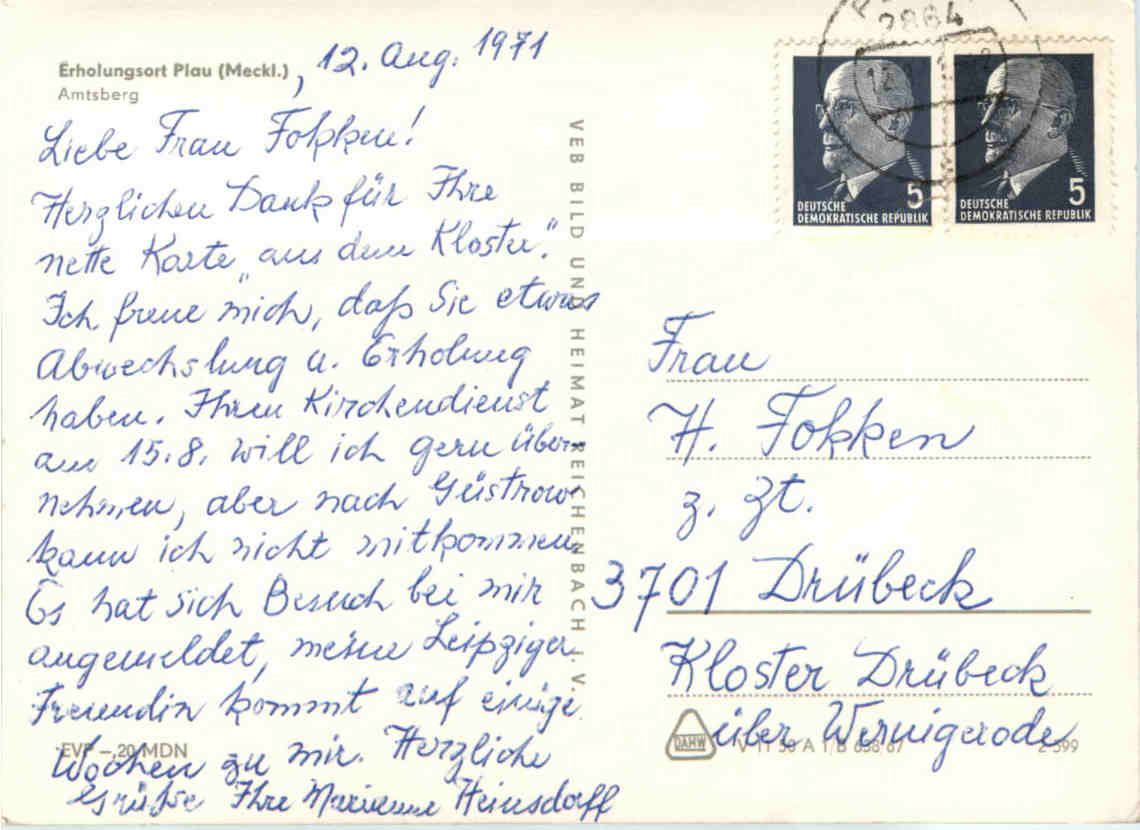 Erholungsort Plau (Meckl.)
Amtsberg
, 12. Aug. 1971
Liebe Frau Fokken!
Herzlichen Dank für Ihre
nette Karte „aus dem Kloster".
Ich freue mich, daß Sie etwas
Abwechslung u. Erholung
haben. Ihren Kirchendienst
am 15.8. will ich gern über-
nehmen, aber nach Güstrow
kann ich nicht mitkommen.
Es hat sich Besuch bei mir
angemeldet, meine Leipziger
Freundin kommt auf einige
Wochen zu mir. Herzliche
Grüße Ihre Marianne Heinsdorff
EVP –,20 MDN
VEB BILD UND HEIMAT REICHENBACH I. V.
2864
5
DEUTSCHE
DEMOKRATISCHE REPUBLIK
5
DEUTSCHE
DEMOKRATISCHE REPUBLIK
Frau
H. Fokken
z. Zt.
3701 Drübeck
Kloster Drübeck
über Wernigerode
DAHW
V 11 50 A 1/B 638/67